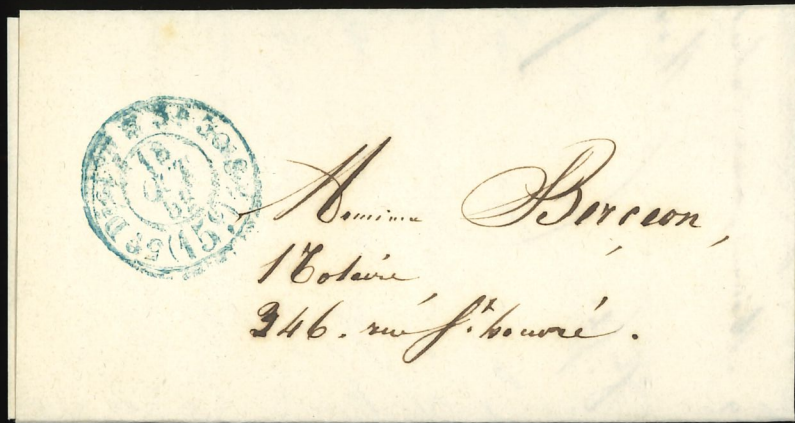 15
OCT
Monsieur Berceon,
Notaire,
346. rue St. honoré.